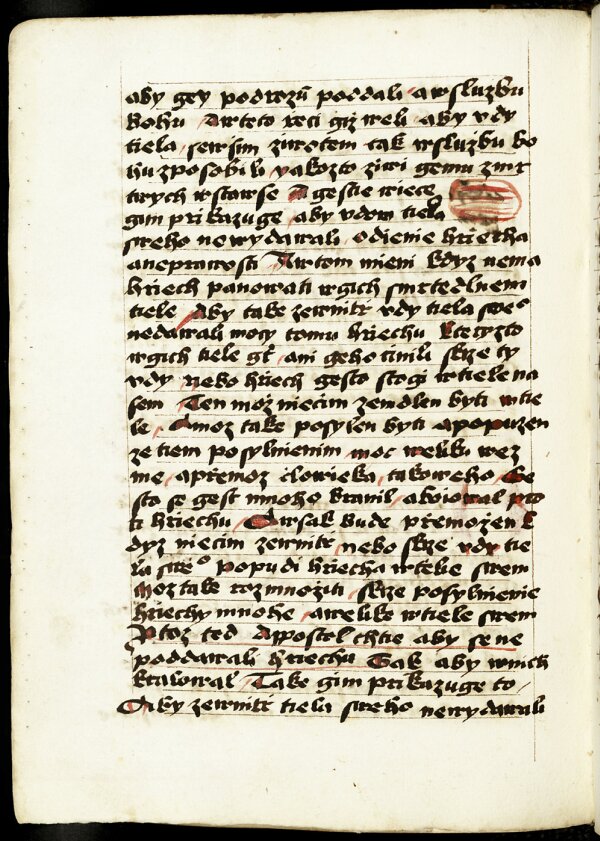 aby gey podrozū poddali a wsluzbu
bohu Awteto rzeci giz weli aby vdy
tiela sewssim ziwotem tak wsluzbu bo
hu zposobili yakozto ziwi gemu z mr
twych wstawsse A gestie wiece
gim prikazuge aby vdow tiela
sweho newydawali odienie hriecha
a neprawosti Awtom mieni kdyz nema
hriech panowati wgich smrtedlnem
tiele Aby take zewnitr vdy tiela sweº
nedawali mocy tomu hriechu kteryzto
wgich tiele gt ani geho cinili skrze ty
vdy nebo hriech gesto stogi wtiele na
sem Ten moz niecim zemdlen byti wtie
le Amoz take posylen byti a popuzen
ze tiem posylnienim moc weliku wez
me a přemoz clowieka takoweho Ge
sto se gest mnoho branil a boiowal pro
ti hriechu Awsak bude přemozen k
dyz niecim zewnitr nebo skrze vdy tie
la sweº popudi hriecha wtobie swem
moz take rozmnoziti skrze posylnienie
hriechy mnohe a welike wtiele swem
Protoz ted Appostol chtie aby se ne
poddawali hriechu Tak aby wnich
kralowal Tako gim prikazuge to
Aby zewnitr tiela sweho newydawali